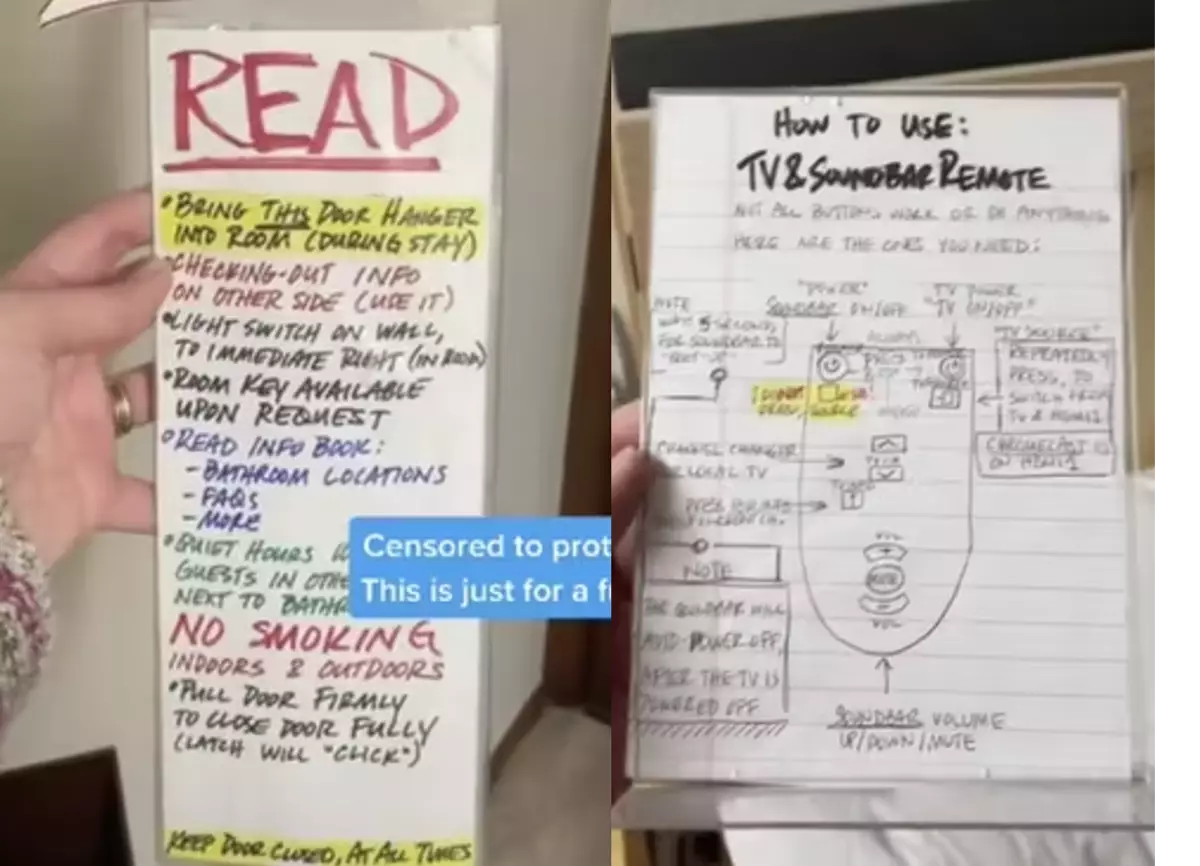 READ
•BRING THIS DOOR HANGER
INTO ROOM (DURING STAY)
•CHECKING-OUT INFO
ON OTHER SIDE (USE IT)
•LIGHT SWITCH ON WALL,
TO IMMEDIATE RIGHT (IN ROOM)
•ROOM KEY AVAILABLE
UPON REQUEST
•READ INFO BOOK:
-BATHROOM LOCATIONS
-FAQS
-MORE
•QUIET HOURS
GUESTS IN OTHE
NEXT TO BATHR
Censored to prot
This is just for a f
NO SMOKING
INDOORS & OUTDOORS
•PULL DOOR FIRMLY
TO CLOSE DOOR FULLY
(LATCH WILL "CLICK")
KEEP DOOR CLOSED, AT ALL TIMES
HOW TO USE:
TV & SOUNDBAR REMOTE
NOT ALL BUTTONS WORK OR DO ANYTHING
HERE ARE THE ONES YOU NEED:
"POWER"
SOUNDBAR ON/OFF
TV POWER
"TV ON/OFF"
NOTE
WAIT 5 SECONDS,
FOR SOUNDBAR TO
"TV SOURCE"
REPEATEDLY
PRESS, TO
SWITCH FROM
TV & HDMI 1
CHROMECAST IS
ON HDMI 1
SOURCE
CHANNEL CHANGER
LOCAL TV
VOL
+
MUTE
-
VOL
NOTE
THE SOUNDBAR WILL
AUTO-POWER OFF,
AFTER THE TV IS
POWERED OFF
SOUNDBAR VOLUME
UP/DOWN/MUTE